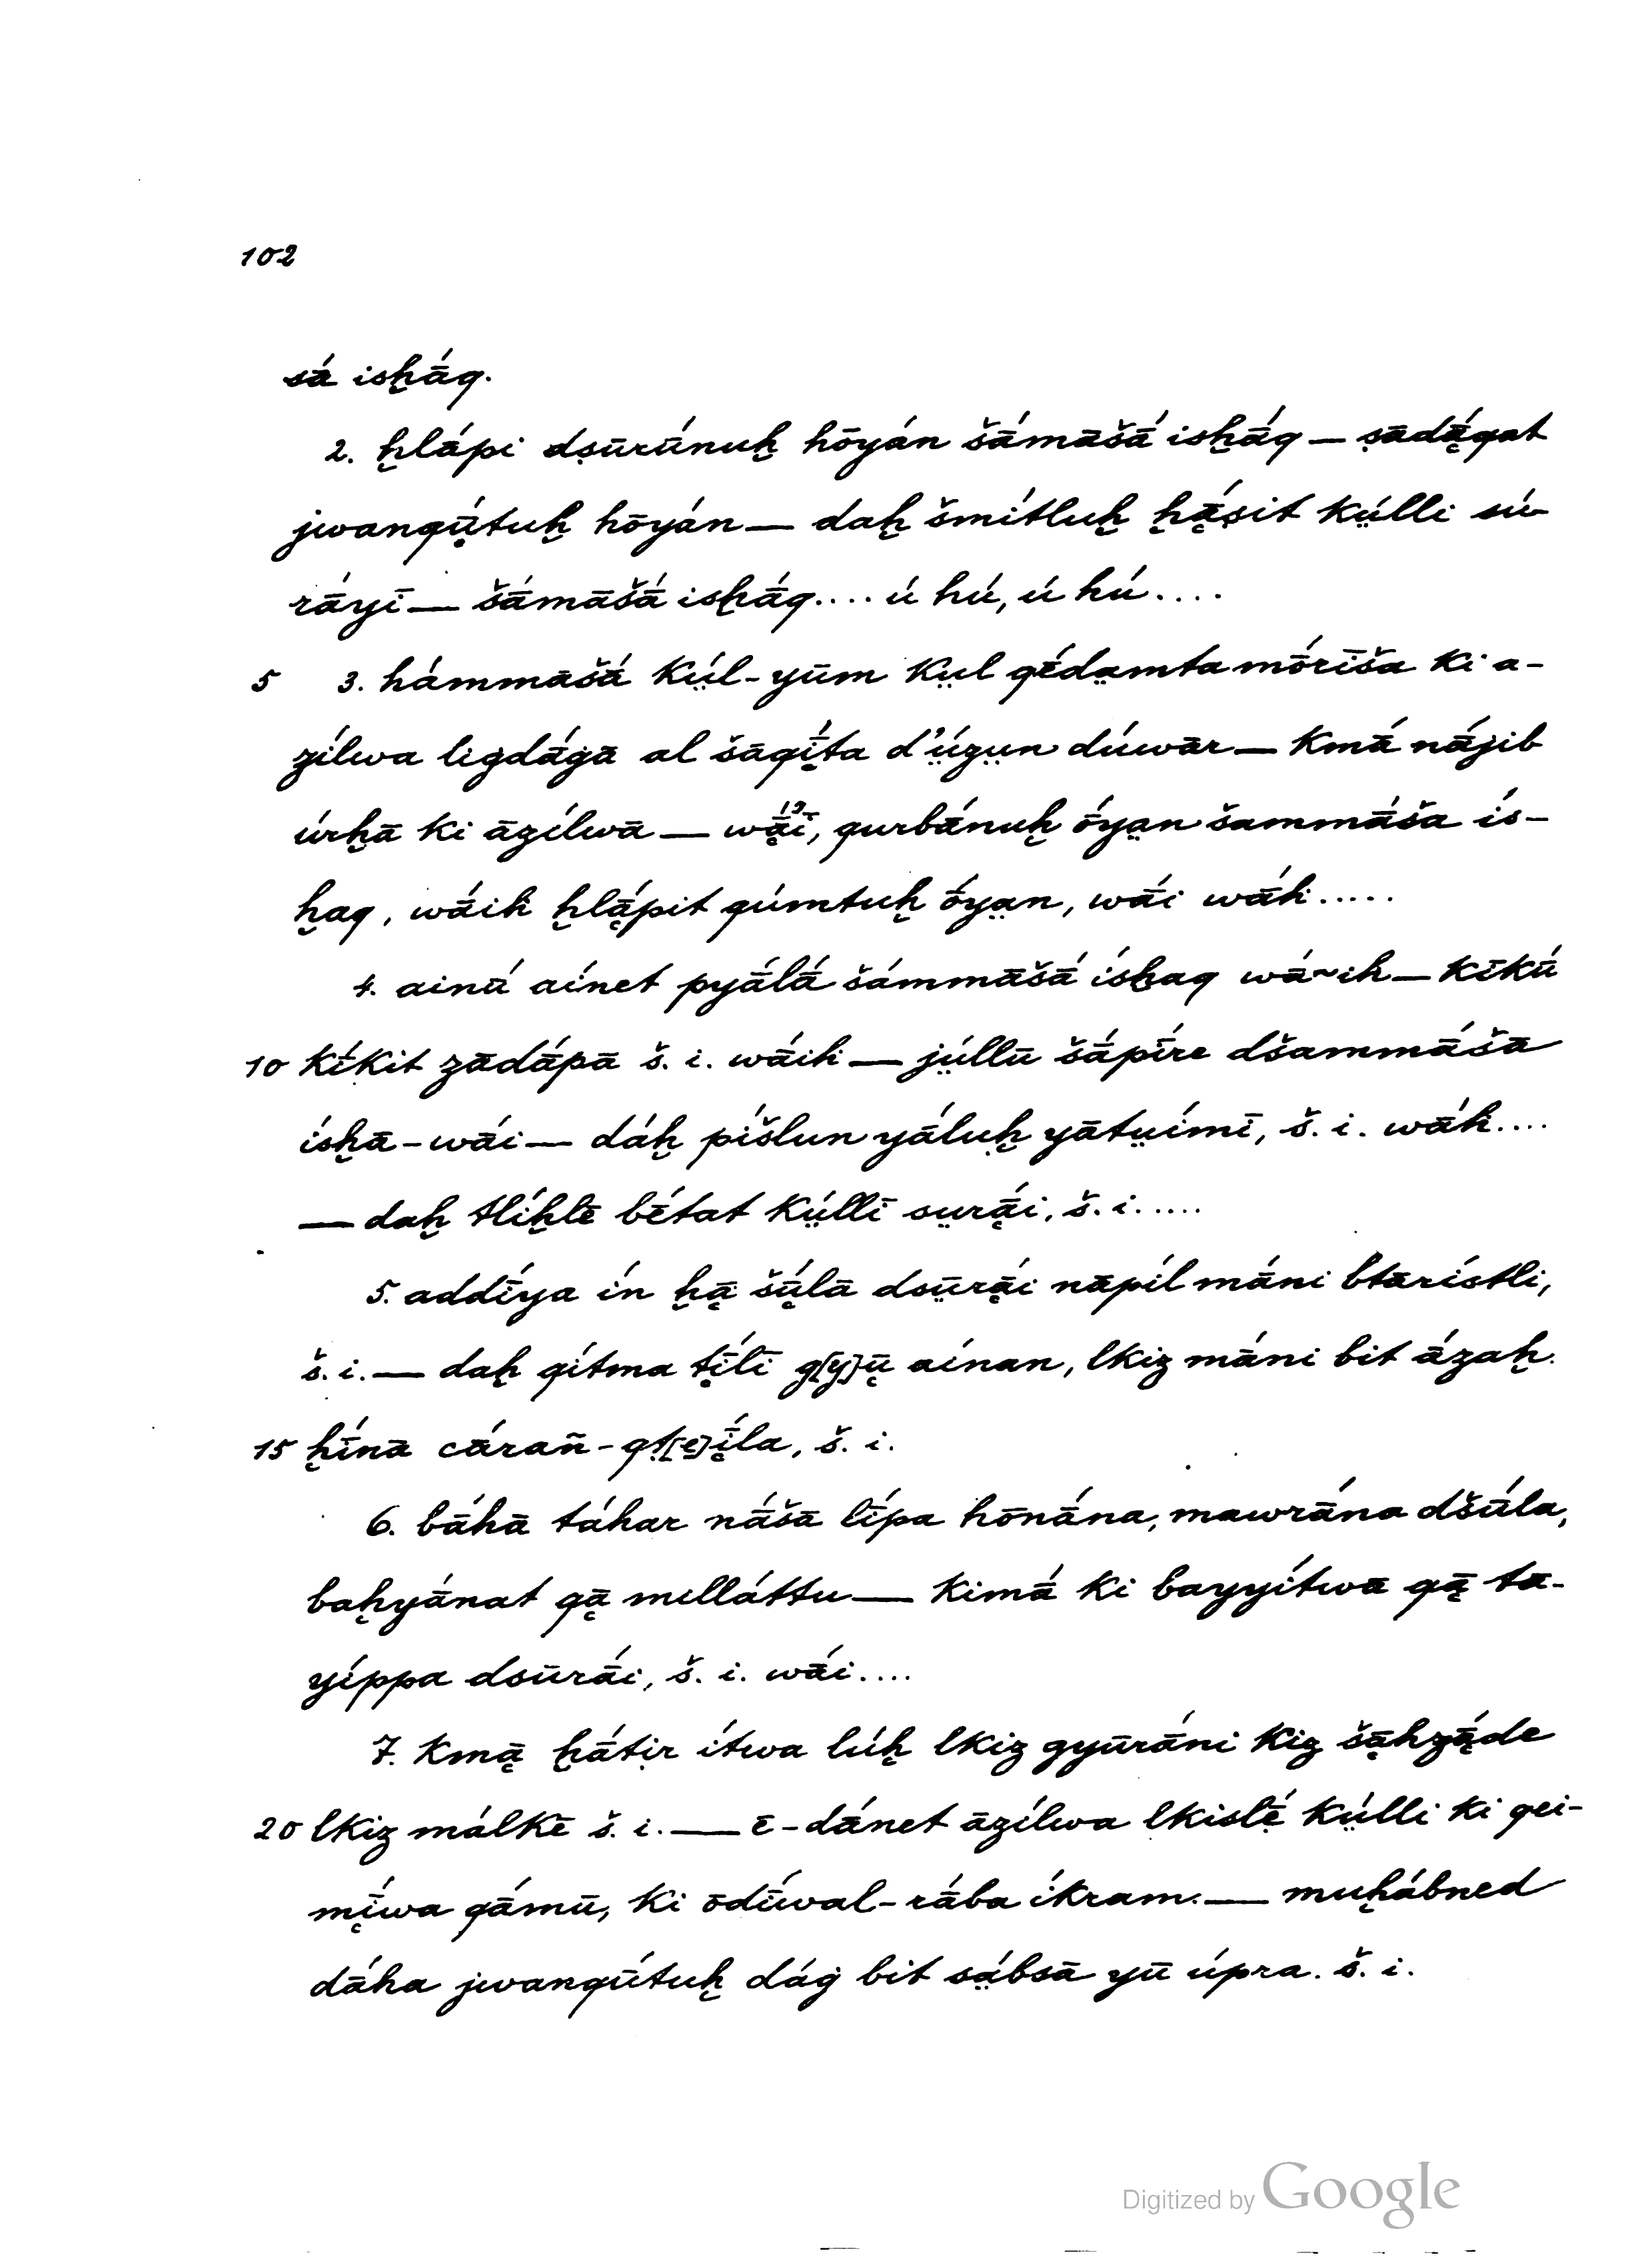 102
sā́ isḫā́q.
2. ḫlā́pi dṣūrū́nuḫ hōyán šā́māšā́ isḫā́q — ṣādą̄́qat
jwanqṳ̄́tuḫ hōyán — daḫ šmítluḫ ḫą̄́ṣit kṳ́lli sú-
rāyī — šā́māšā́ isḫā́q.... ú hú, ú hú....
5 3. hámmāšā́ kṳ́l-yūm kṳl qḗda̤mta mṓrīša ki a-
zílwa ligdā́gā al šāqī̤́ta d'ṳ́zṳn dúwār — kmā́ nā́jib
úrḫā ki āzílwā — wą̄́ī, qurbā́nuḫ ṓya̤n šammā́ša ís-
ḫaq, wā́ih ḫlą̄́pit qúmtuḫ ṓya̤n, wā́i wā́h.....
4. ainū́ aínet pyālā́ šámmāšā́ ísḫaq wā~ih — kīkū́
10 kī́kit zādā́pā š. i. wā́ih — jṳ́llū šā́pī́re dšammā́šā
ísḫā-wāi — dáḫ píšlun yā́luḫ yātṳímī, š. i. wā́h....
— daḫ tlíḫlē bḗtat kṳ́llī sṳrą̄́i, š. i.....
5. addī́ya ín ḫą̄ šų̄́lā dsṳ̄rą̄́i nāpíl mā́ni btārístli,
š. i. — daḫ qítma tī̤́lī g[y]ų̄ aínan, lkiz mā́ni bit ā́zaḫ.
15 ḫī́nā cā́rañ-qṭ[e]į̄́la, š. i.
6. bā́hā táhar nā́šā lī́pa hōnā́na, mawrā́na dšū́la,
baḫyā́nat qą̄ mellátttu — kimā́ ki bayyítwā qą̄ tā-
yíppa dsūrā́i, š. i. wā́i....
7. kmą̄ ḫā́tịr ítwa lúḫ lkiz gyūrā́ni kiz šą̄hzą̄́de
20 lkiz málkē š. i. — ē-dā́net āzílwa lkislḗ kṳ́lli ki qei-
mį̄́wa qā́mū, ki ōdī́wal-rā́ba íkram. — muḫábned
dāha jwanqū́tuḫ dáġ bit sa̤bsā yū úpra. š. i.
Digitized by Google